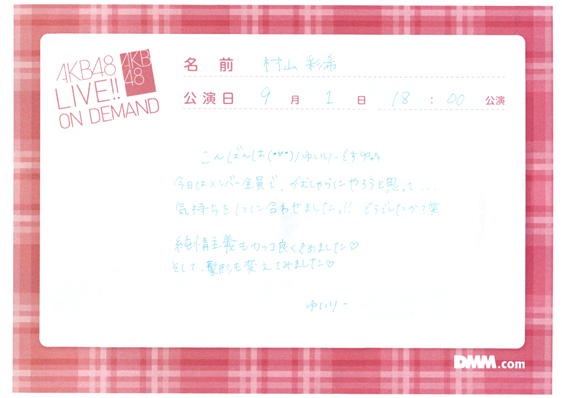 AKB48
LIVE!!
ON DEMAND
AKB
48
名前 村山彩希
公演日 9月1日 18:00公演
こんばんは(・v・)/ゆいりーですっ
今日はメンバー全員で、がむしゃらにやろうと思って…
気持ちを1つに合わせました!! どうでしたか?笑
純情主義もカッコ良くきめました♡
そして、髪形も変えてみました♡
ゆいりー
DMM.com